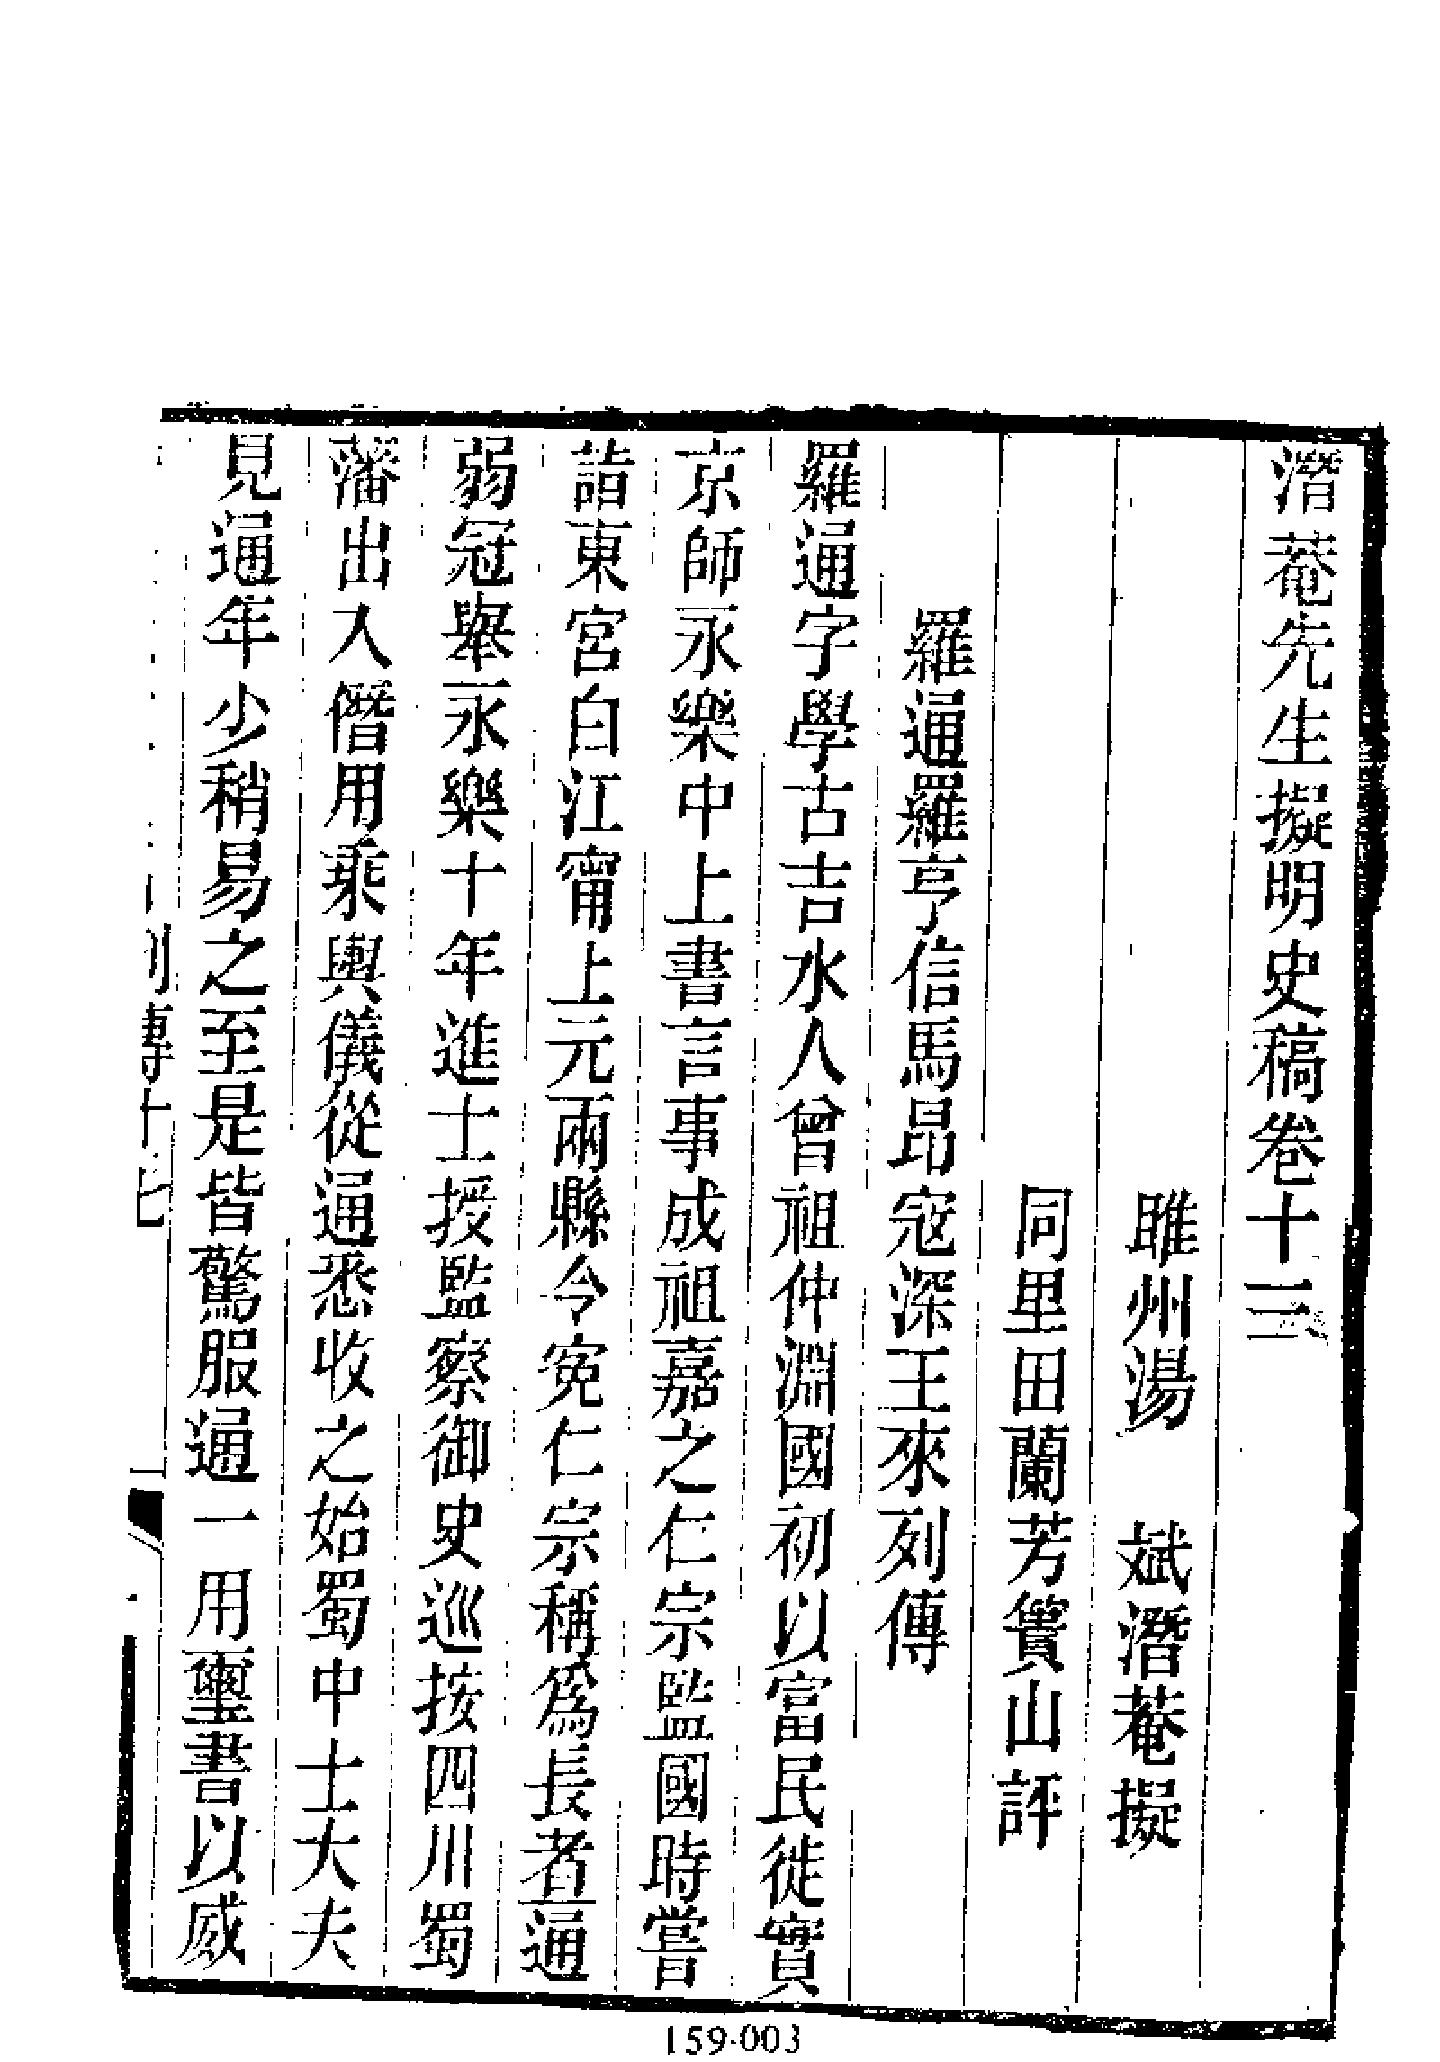 潛菴先生擬明史稿卷十三
睢州湯 斌潛菴擬
同里田蘭芳簣山評
羅通羅亨信馬昂寇深王來列傳
羅通字學古吉水人曾祖仲淵國初以富民徙實
京師永樂中上書言事成祖嘉之仁宗監國時嘗
詣東宮白江甯上元兩縣令寃仁宗稱爲長者通
弱冠舉永樂十年進士授監察御史巡按四川蜀
藩出入僭用乘輿儀從通悉收之始蜀中士大夫
見通年少稍易之至是皆驚服通一用璽書以威
列傳十七
159-003